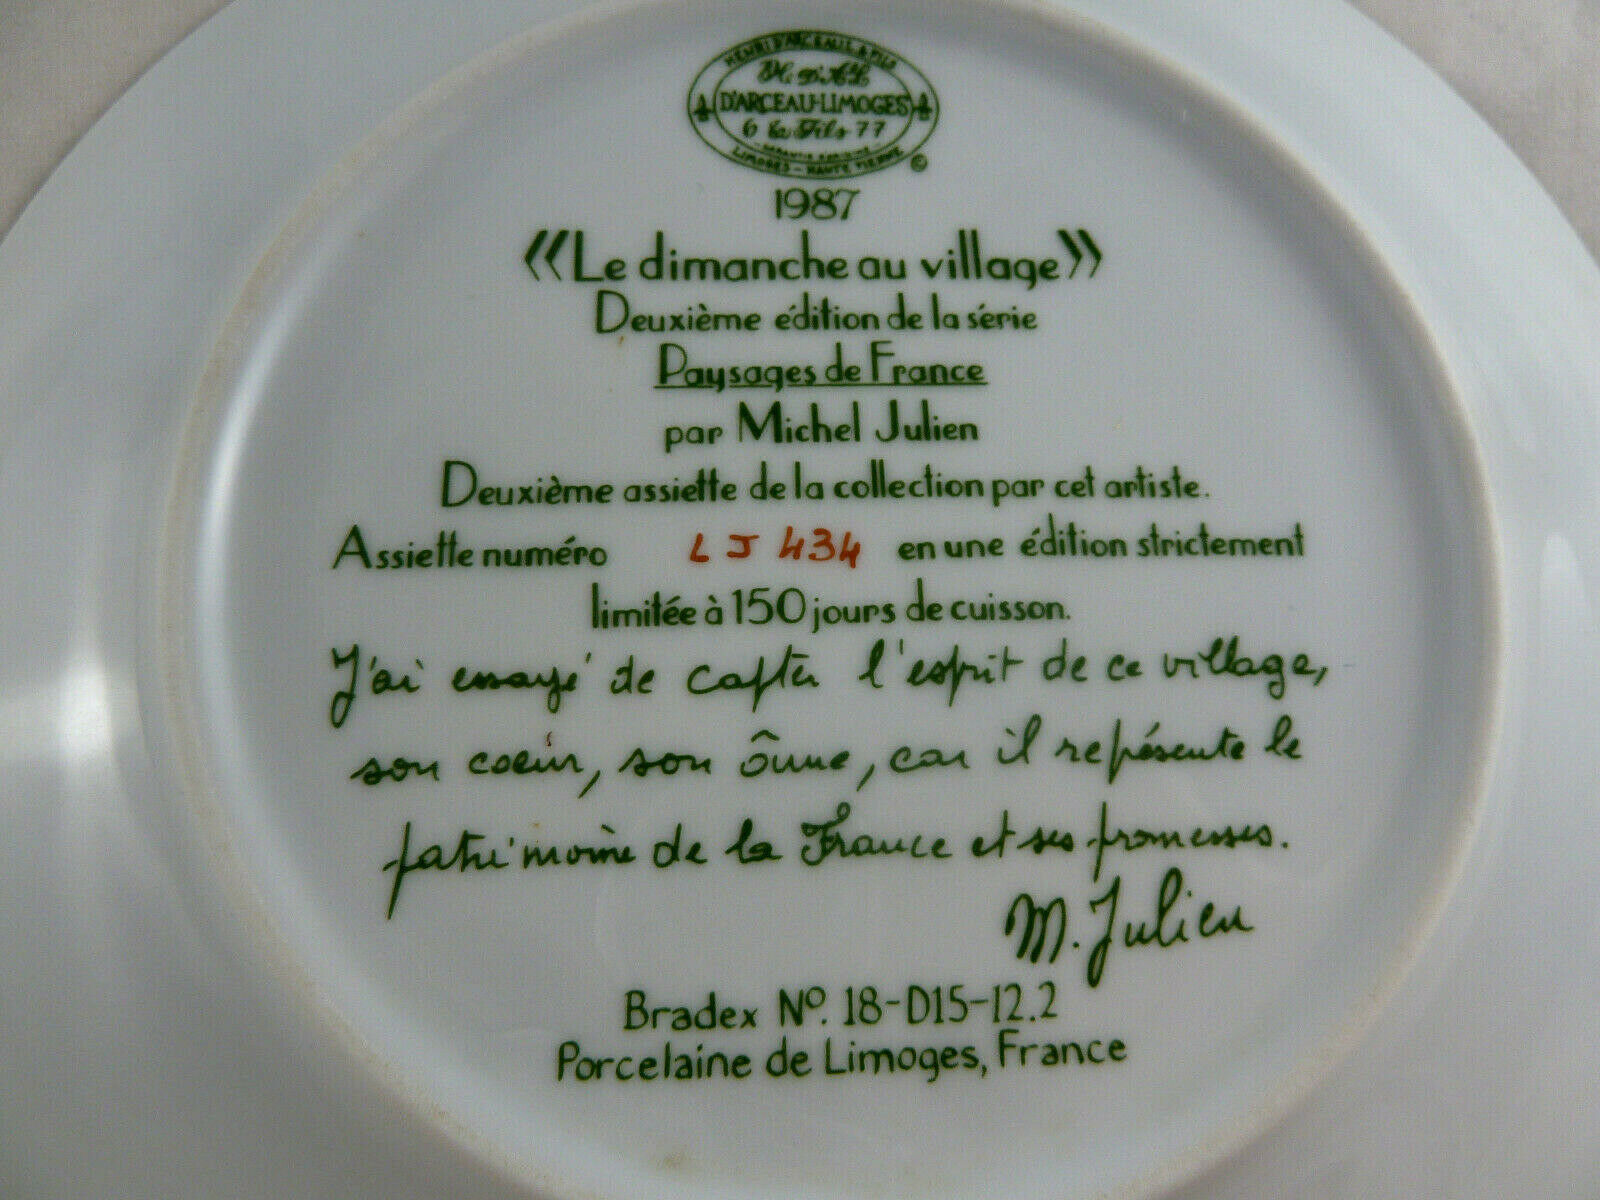 HENRI D'ARCEAU & FILS
H. D'A & L
D'ARCEAU-LIMOGES
6 & Fils 77
LIMOGES - HAUTE VIENNE
©
1987
«Le dimanche au village»
Deuxième édition de la série
Paysages de France
par Michel Julien
Deuxième assiette de la collection par cet artiste.
Assiette numéro LJ 434 en une édition strictement
limitée à 150 jours de cuisson.
J'ai essayé de capter l'esprit de ce village,
son coeur, son âme, car il représente le
patrimoine de la France et ses promesses.
M. Julien
Bradex Nº. 18-D15-12.2
Porcelaine de Limoges, France